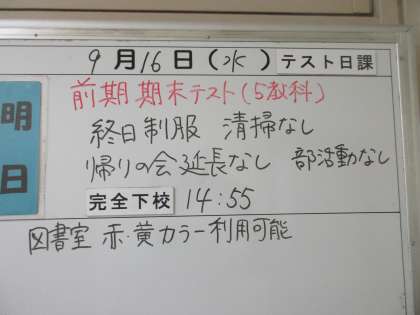 9月16日(水) テスト日課
明日
前期期末テスト(5教科)
終日制服 清掃なし
帰りの会延長なし 部活動なし
完全下校 14:55
図書室 赤・黄カラー利用可能